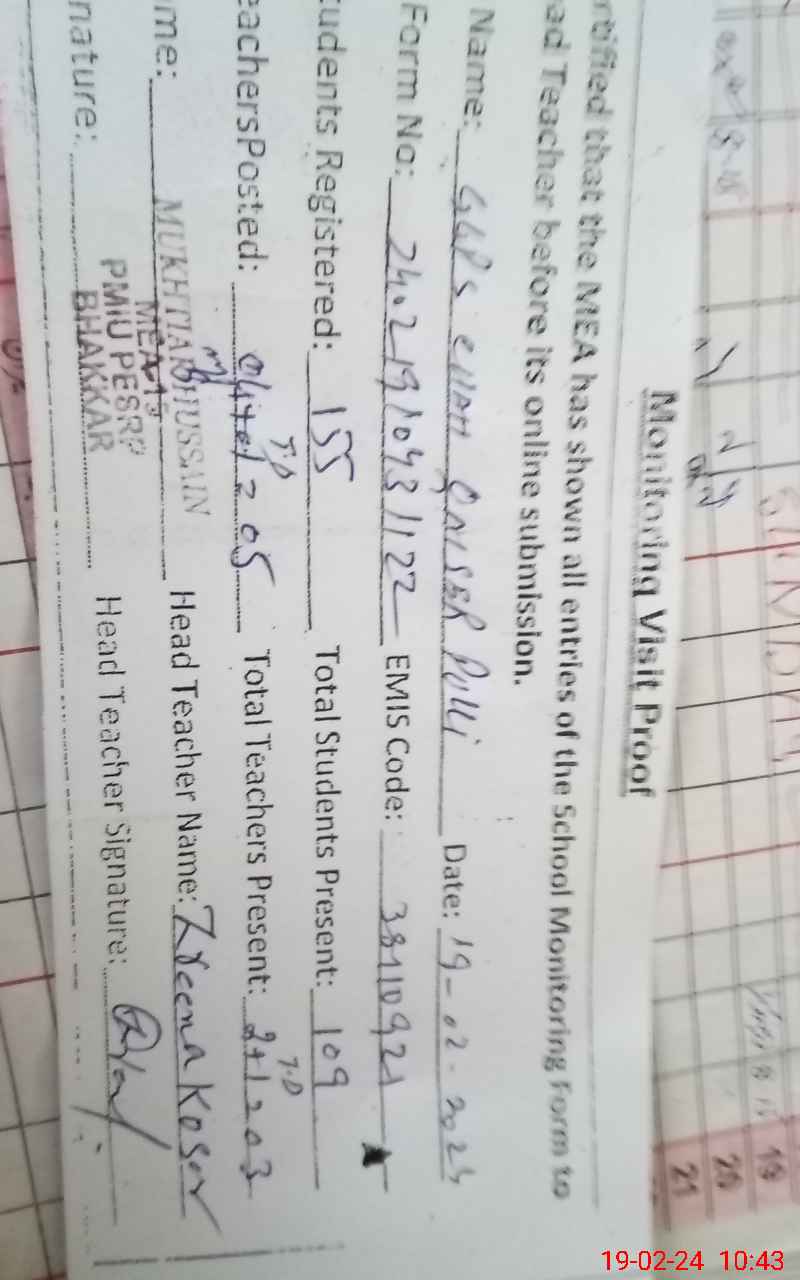 Monitoring Visit Proof
rtified that the MEA has shown all entries of the School Monitoring Form to
ad Teacher before its online submission.
Name: GGPS CHAH QAISER Date: 19-02-2024
Form No: EMIS Code: 38110921
tudents Registered: 155 Total Students Present: 109
eachersPosted: 04+01=05 Total Teachers Present: 2+1=03
T.D T.D
me: MUKHTIAR HUSSAIN Head Teacher Name: Zreena Kosar
MEA-15
PMIU PESRP
BHAKKAR
nature: Head Teacher Signature:
19
20
21
19-02-24 10:43